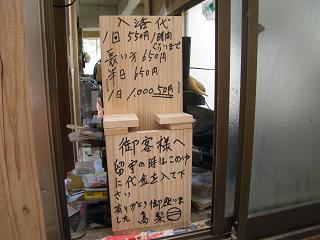 入浴代
1回 550円 1時間
ぐらいまで
長い方 650円
半日 850円
1日 1000.50円
御客様へ
留守の時はこの中
に代金を入て下
さい
ありがとう御座いま
した 高梨